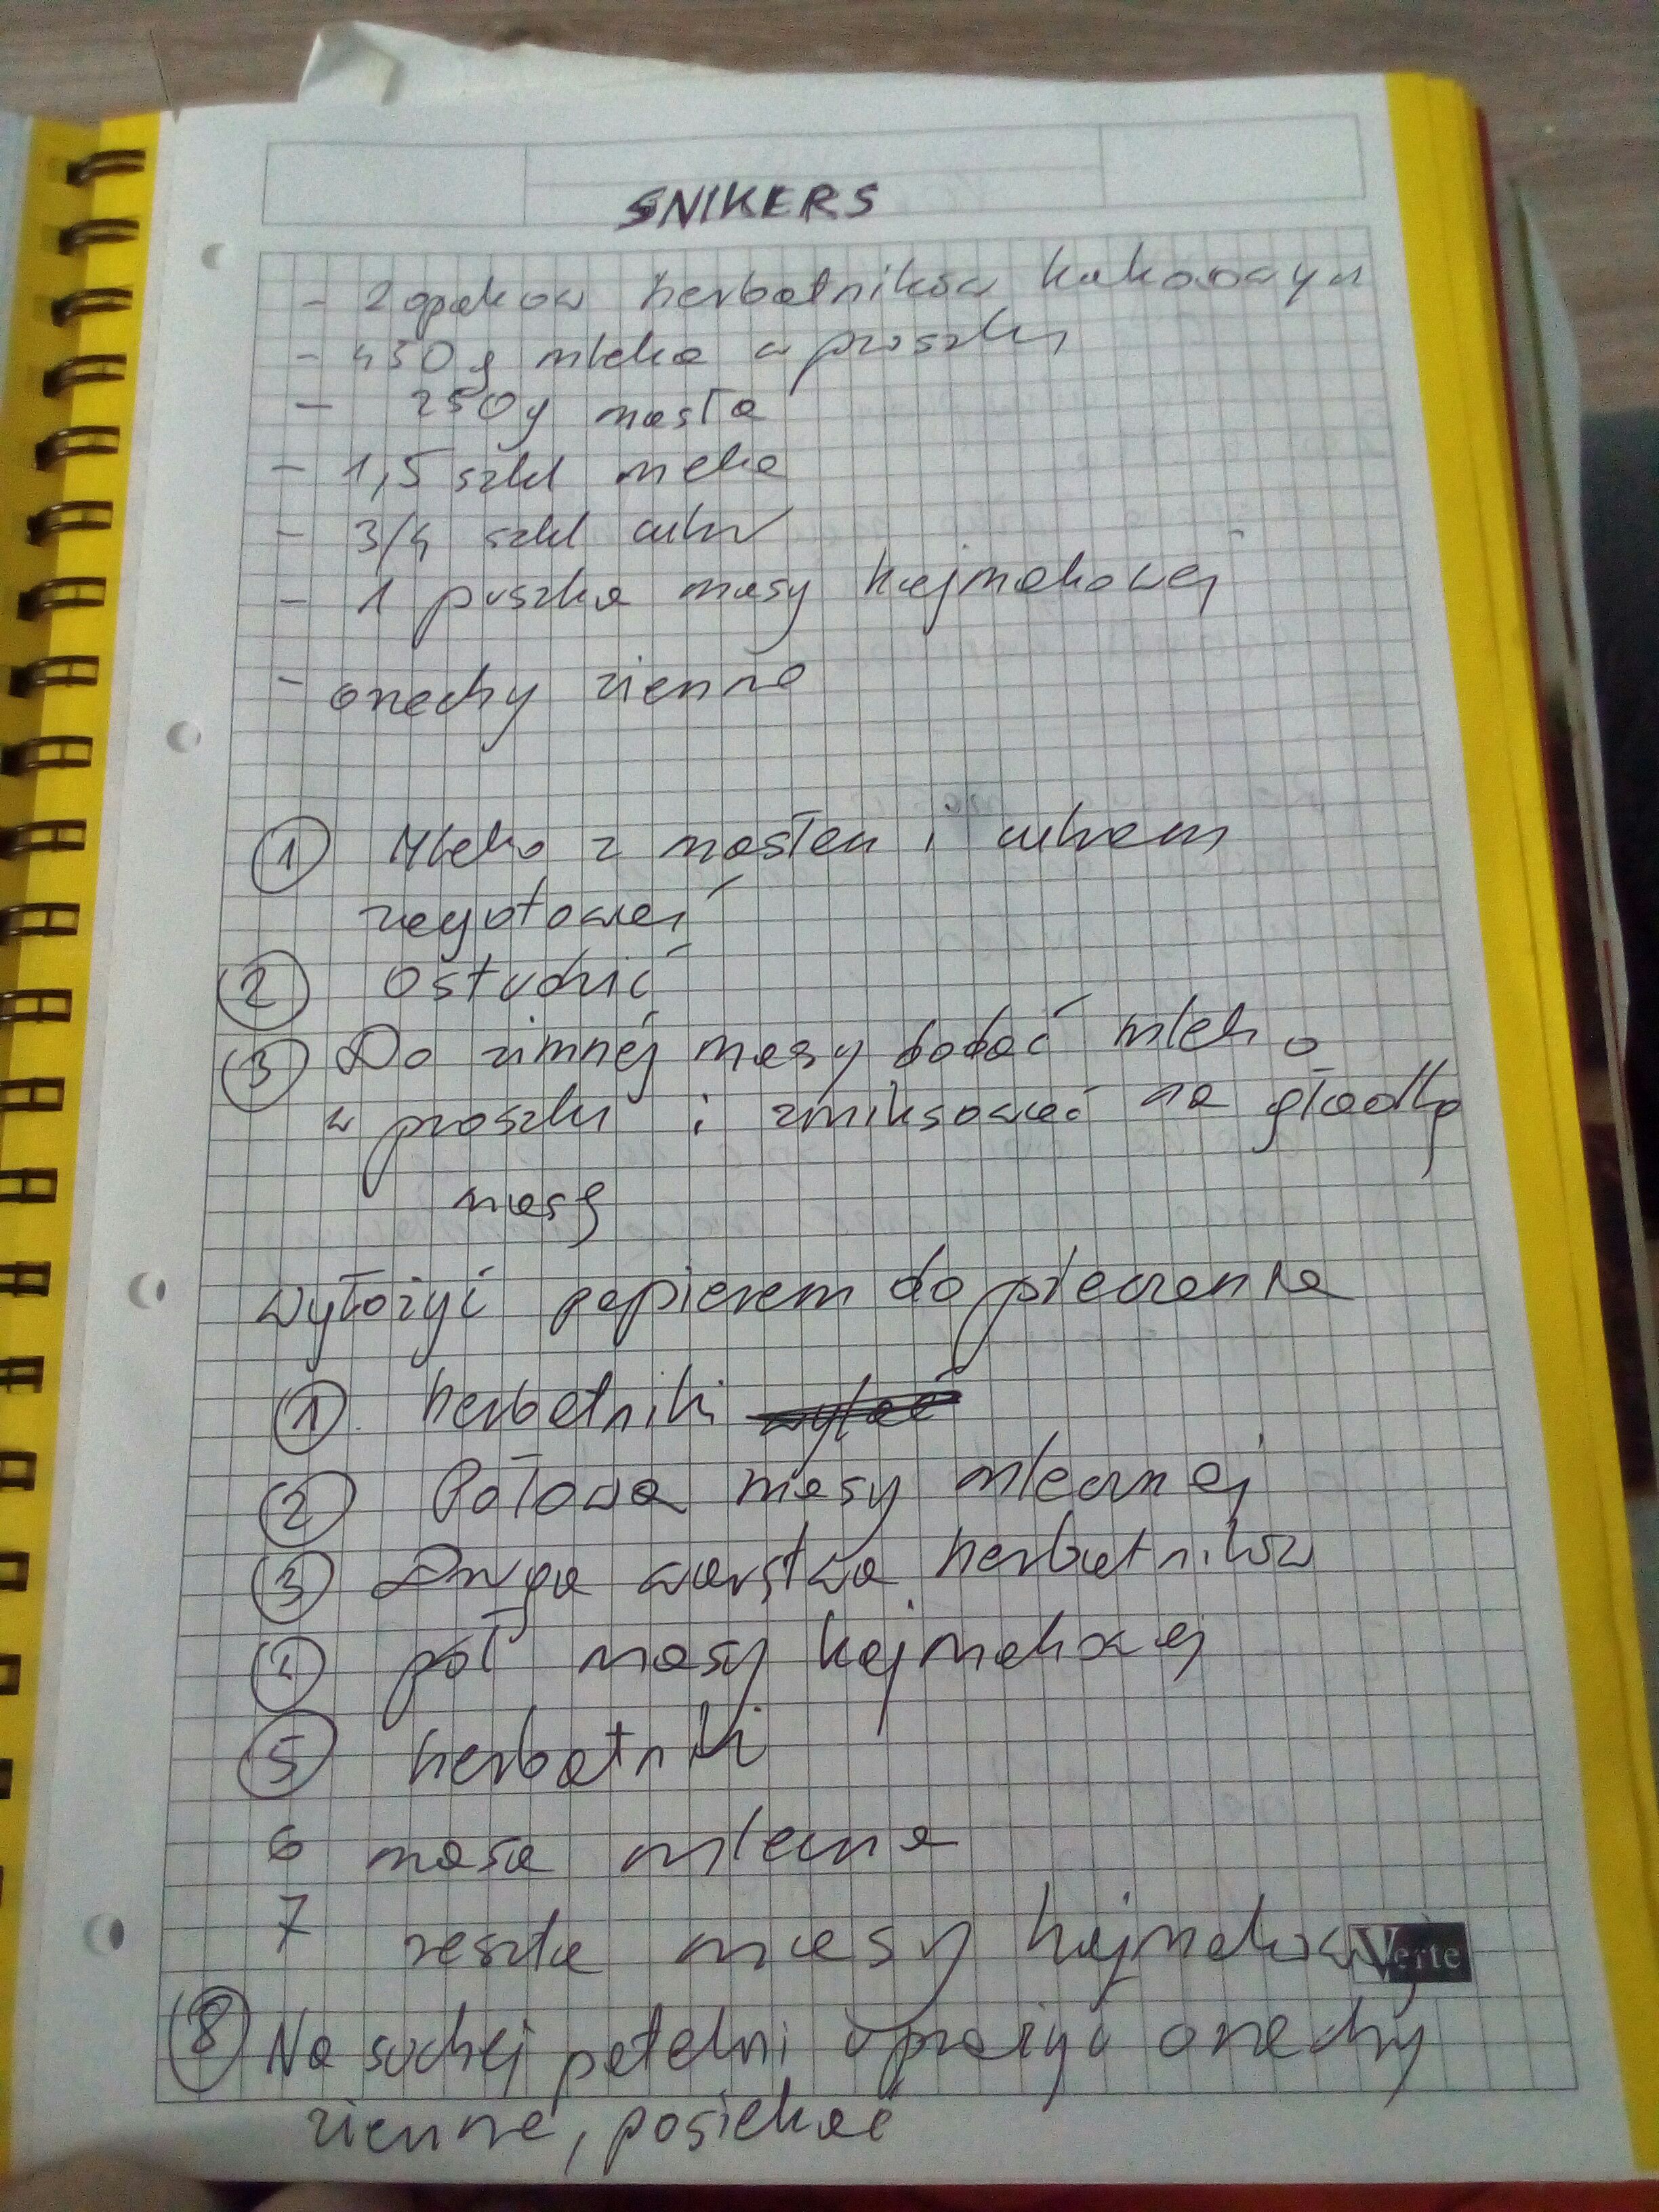 SNIKERS
- 2 opakow herbatników kakaowych
- 450g mleka w proszku
- 250g masła
- 1,5 szkl mleka
- 3/4 szkl cukru
- 1 puszka masy kajmakowej
- orzechy ziemne
① Mleko z masłem i cukrem
zagotować
② Ostudzić
③ Do zimnej masy dodać mleko
w proszku i zmiksować na gładką
masę
Wyłożyć papierem do pieczenia
① herbatniki
② Połowa masy mlecznej
③ Druga warstwa herbatników
④ pół masy kajmakowej
⑤ herbatniki
6 masa mleczna
7 reszta masy kajmakowej
Verte
⑧ Na suchej patelni uprażyć orzechy
ziemne, posiekać